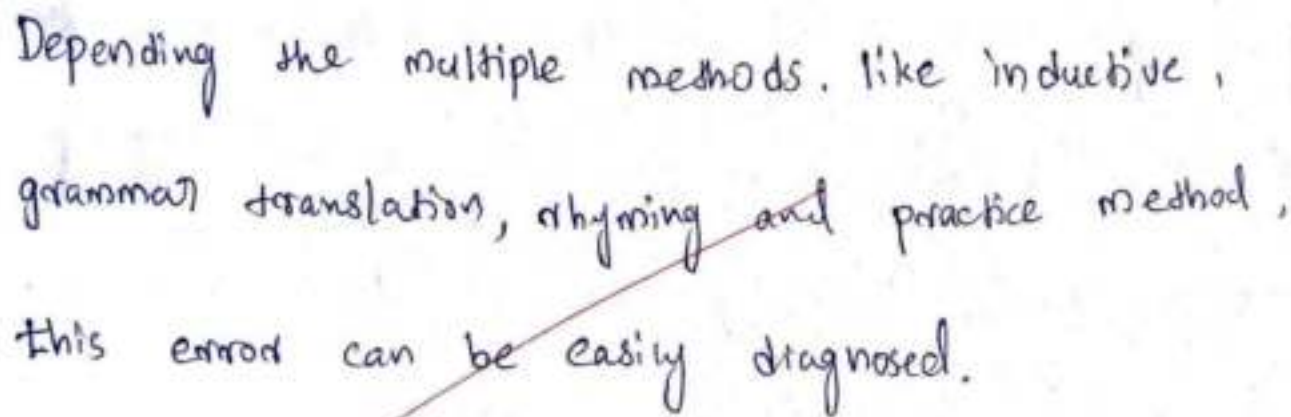 Depending the multiple methods. like inductive,
grammar translation, rhyming and practice method,
this error can be easily diagnosed.